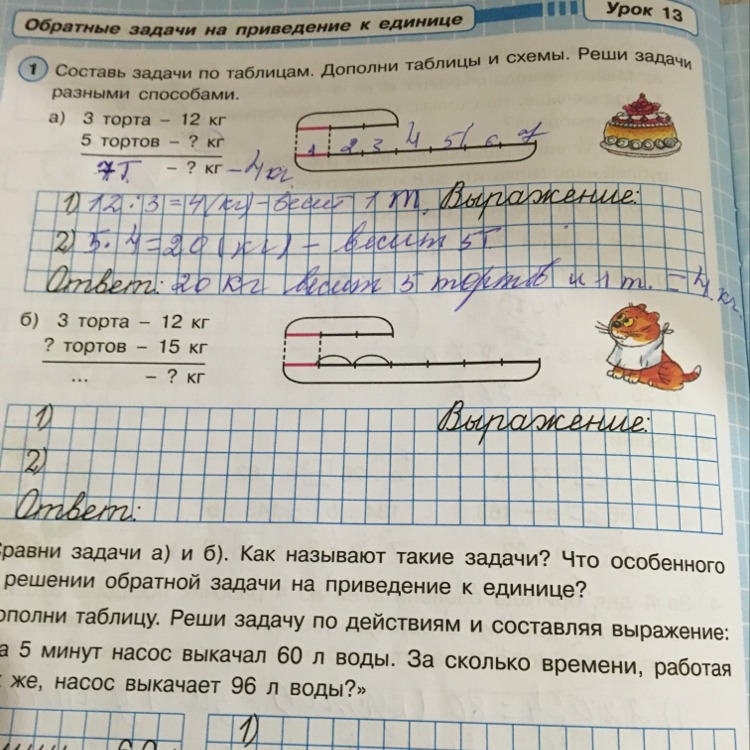 Обратные задачи на приведение к единице
Урок 13
1 Составь задачи по таблицам. Дополни таблицы и схемы. Реши задачи
разными способами.
а) 3 торта – 12 кг
5 тортов – ? кг
7т. – ? кг – 4кг.
1 2 3 4 5 6 7
1) 12 : 3 = 4 (кг) – весит 1 т. Выражение:
2) 5 · 4 = 20 (кг) – весит 5т
Ответ: 20 кг весит 5 тортов и 1 т. = 4 кг.
б) 3 торта – 12 кг
? тортов – 15 кг
... – ? кг
1) Выражение:
2)
Ответ:
равни задачи а) и б). Как называют такие задачи? Что особенного
решении обратной задачи на приведение к единице?
ополни таблицу. Реши задачу по действиям и составляя выражение:
а 5 минут насос выкачал 60 л воды. За сколько времени, работая
к же, насос выкачает 96 л воды?»
1)